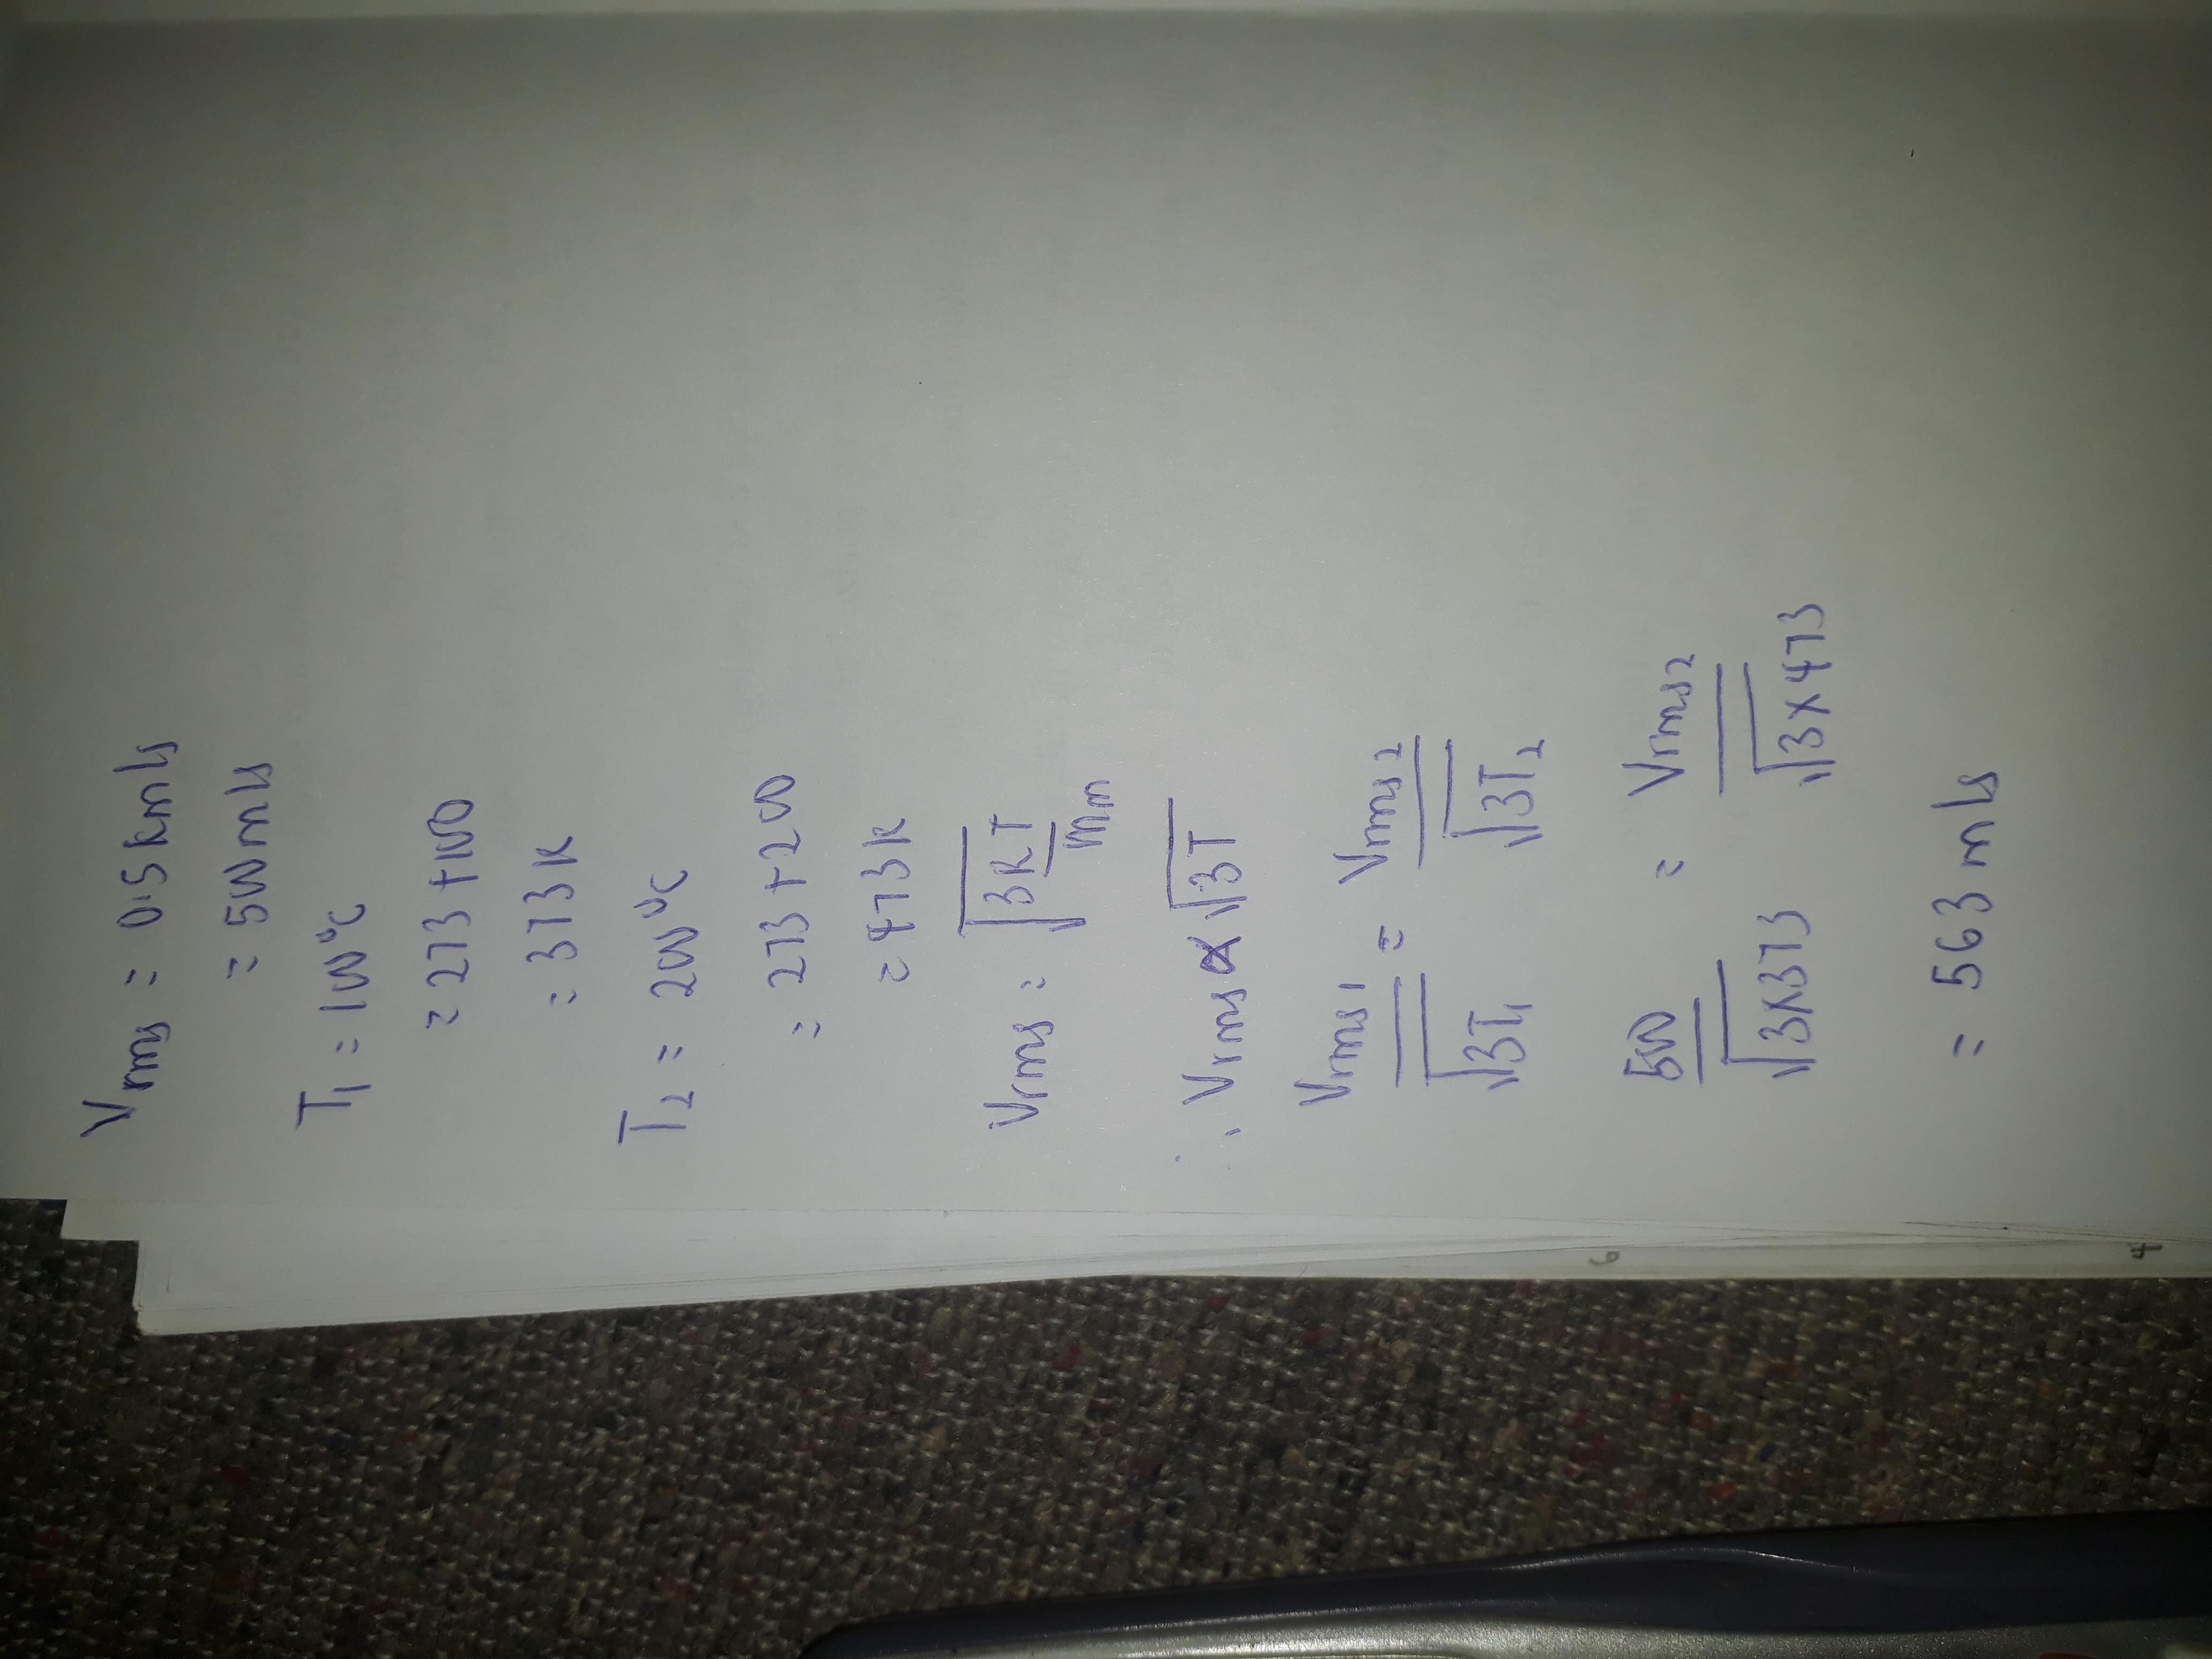 Vrms = 0.5 km/s
= 500 m/s
T₁ = 100°C
= 273 + 100
= 373 K
T₂ = 200°C
= 273 + 200
= 473 K
Vrms = √(3RT/Mm)
∴ Vrms ∝ √3T
Vrms1/√3T₁ = Vrms2/√3T₂
500/√3×373 = Vrms2/√3×473
= 563 m/s
6
4